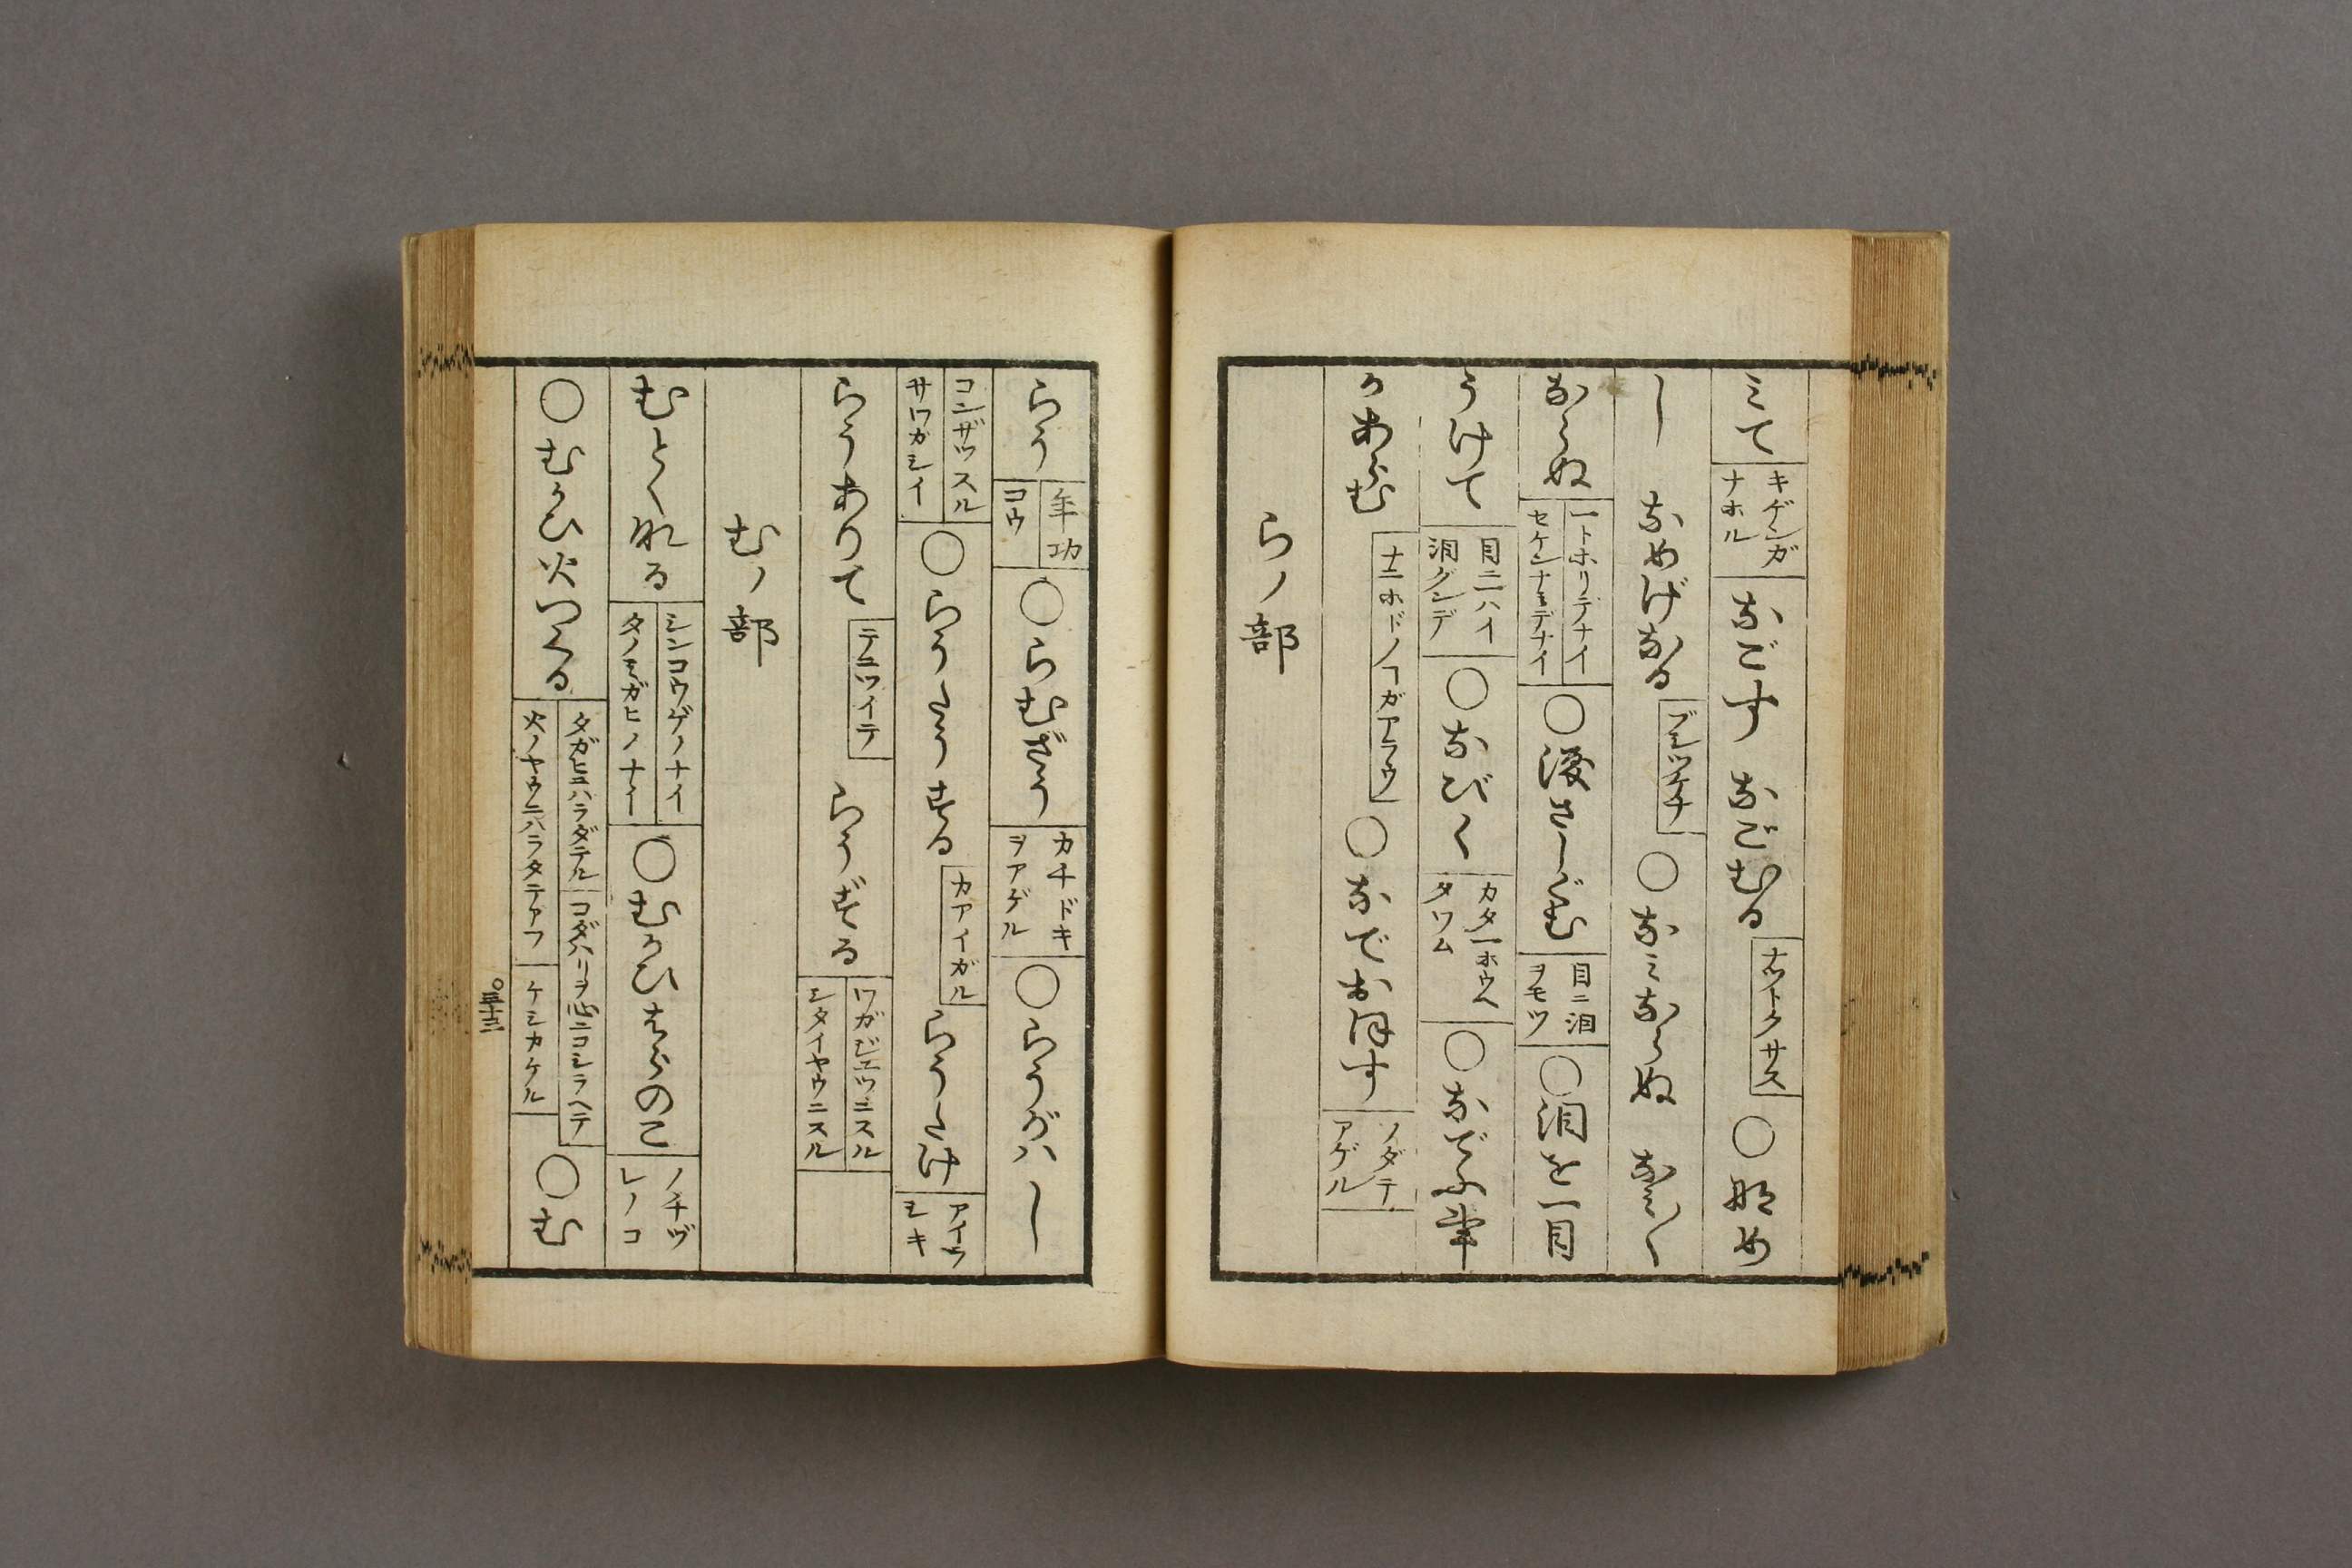 みて キゲンガ ナホル なごす なごむる ナットクサス ○なめ
し なめげなる ブシツケナ ○なみならぬ なみ〳〵
ならぬ 一トホリデナイ セケンナミデナイ ○涙さしぐむ 目ニ泪ヲモツ ○泪を一目
うけて 目ニ一ハイ泪グンデ ○なびく カタ一ホウヘタワム ○なでふ事
かあらむ ナニホドノヿガアラウ ○なでおほす ソダテアゲル
らノ部
らう 年功 コウ ○らむざう カチドキヲアゲル ○らうがはし
コンザツスル サワガシイ ○らうたうする カアイガル らうたけ アイウシキ
らうありて テニツイテ らうずる ワガジユウニスル シタイヤウニスル
むノ部
むとくなる シンコウゲノナイ タノモガヒノナイ ○むかひはらのこ ノチヅレノコ
○むかひ火つくる タガヒニハラダテル コダハリヲ心ニコシラヘテ 火ノヤウニハラタテアフ ケシカケル ○む
○三十三